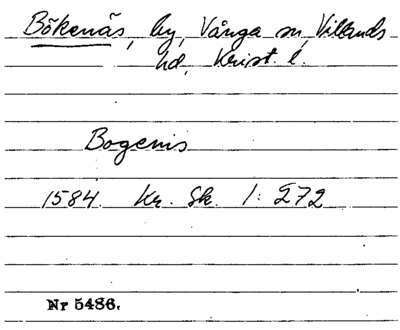 Bökenäs, by, Vånga sn, Villands
hd, Krist. l.
Bogenis
1584. Kr. Sk. 1: 272
Nr 5486.